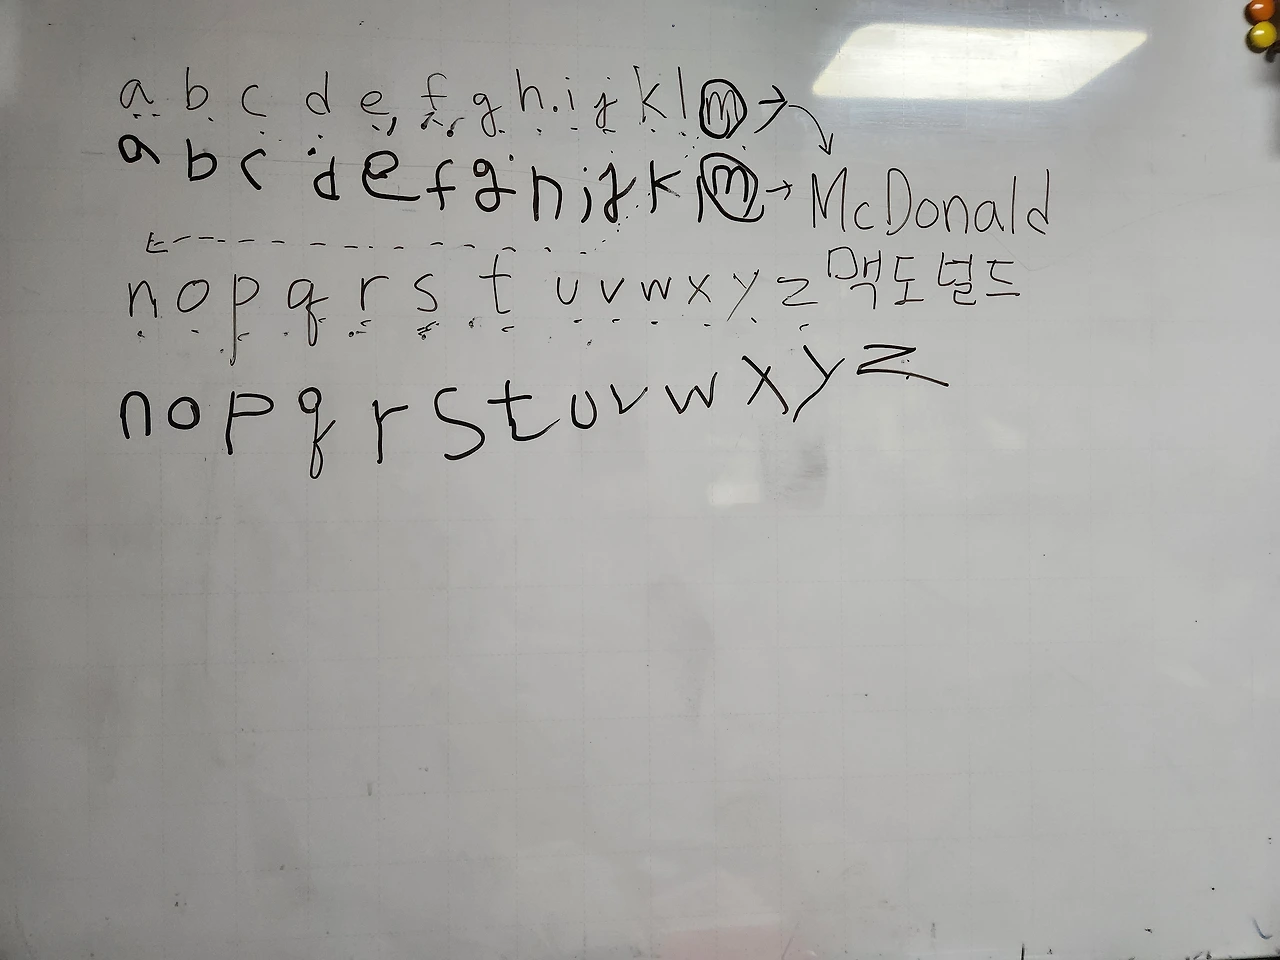 a b c d e f g h i j k l m → McDonald
a b c d e f g h i j k l m →
n o p q r s t u v w x y z 맥도널드
n o p q r s t u v w x y z